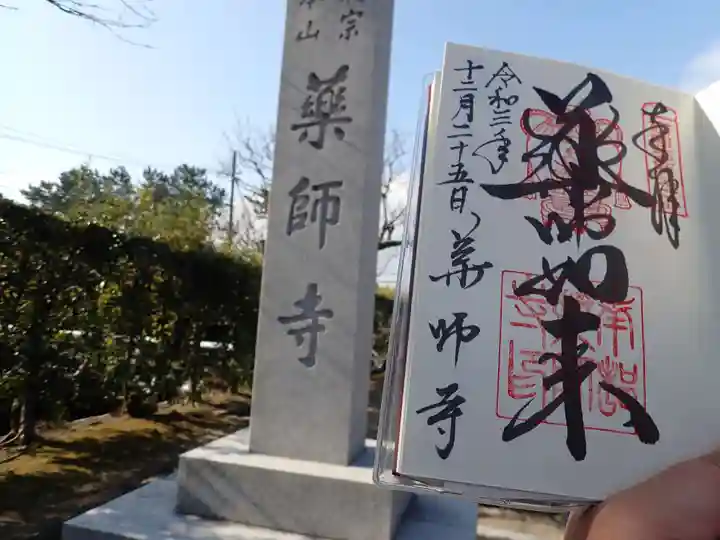 宗
山
藥師寺
奉拝
薬師如来
令和三年
十二月二十五日
薬師寺